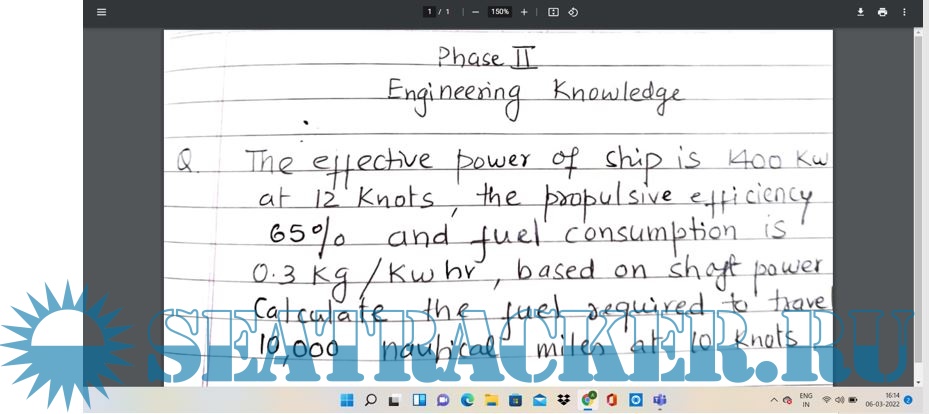 1 / 1 150%
Phase II
Engineering Knowledge
Q. The effective power of ship is 1400 Kw
at 12 Knots, the propulsive efficiency
65% and fuel consumption is
0.3 Kg/Kw hr, based on shaft power
Calculate the fuel required to travel
10,000 nautical miles at 10 Knots
SEATRACKER.RU
ENG
IN
16:14
06-03-2022
2